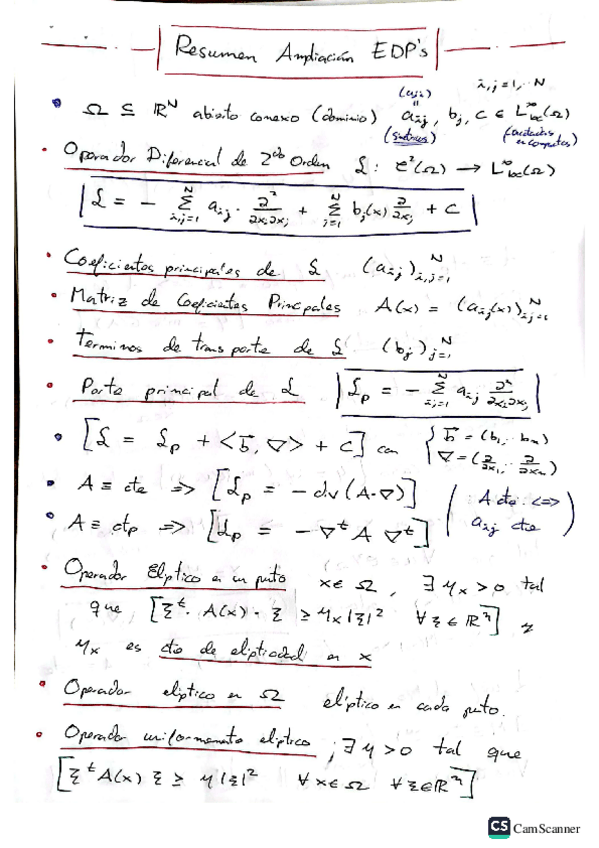 Resumen Ampliación EDP's
i,j=1,..N
• Ω ⊆ ℝᴺ abierto conexo (dominio) aᵢⱼ, bⱼ, c ∈ L^∞_loc(Ω)
(aⱼᵢ) = (simétricos) (acotadas en compactos)
• Operador Diferencial de 2º Orden 𝓛: 𝒞²(Ω) → L^∞_loc(Ω)
𝓛 = - Σ_{i,j=1}^N aᵢⱼ · ∂²/∂xᵢ∂xⱼ + Σ_{j=1}^N bⱼ(x) ∂/∂xⱼ + c
• Coeficientes principales de 𝓛 (aᵢⱼ)_{i,j=1}^N
• Matriz de Coeficientes Principales A(x) = (aᵢⱼ(x))_{i,j=1}^N
• Términos de transporte de 𝓛 (bⱼ)_{j=1}^N
• Parte principal de 𝓛 𝓛p = - Σ_{i,j=1}^N aᵢⱼ ∂²/∂xᵢ∂xⱼ
• [𝓛 = 𝓛p + <b, ∇> + c] con { b = (b₁,.. bₙ) ∇ = (∂/∂x₁, .. ∂/∂xₙ)
• A ≡ cte => [𝓛p = - div (A·∇)] ( A cte <=>
• A ≡ cte => [𝓛p = - ∇ᵗ A ∇ᵗ] aᵢⱼ cte )
• Operador Elíptico en un punto x ∈ Ω, ∃ μₓ > 0 tal
que [ξᵗ · A(x) · ξ ≥ μₓ |ξ|² ∀ ξ ∈ ℝⁿ] y
μₓ es cte de elipticidad en x
• Operador elíptico en Ω elíptico en cada punto.
• Operador uniformemente elíptico ; ∃ μ > 0 tal que
[ξᵗ A(x) ξ ≥ μ |ξ|² ∀ x ∈ Ω ∀ ξ ∈ ℝⁿ]
CS CamScanner